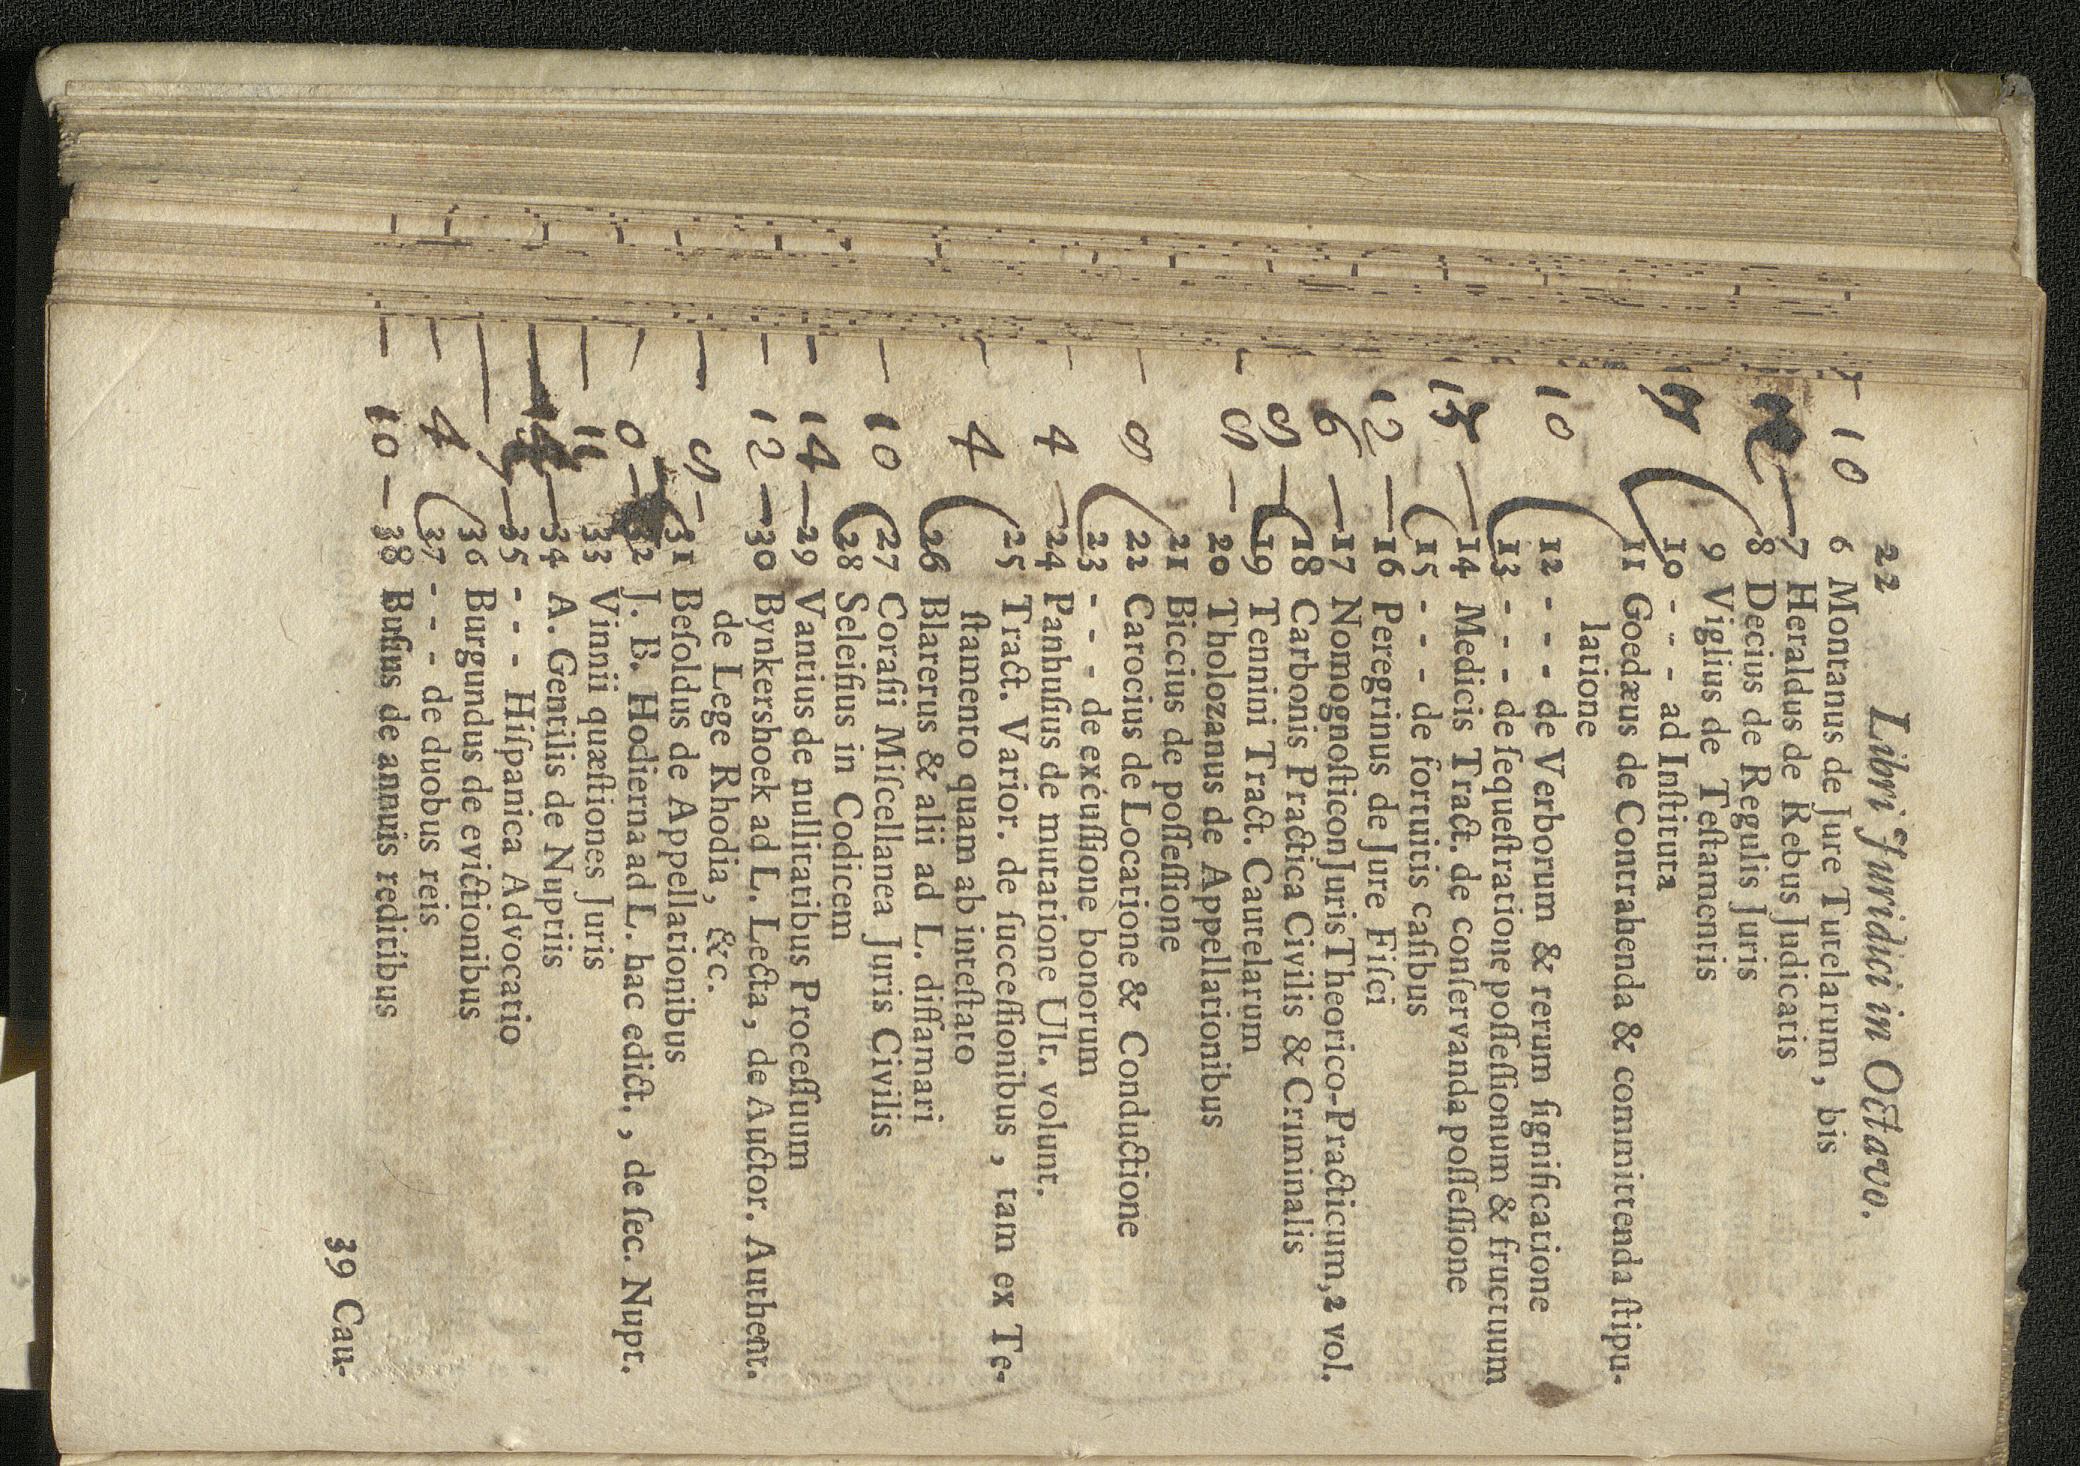 22 Libri Juridici in Octavo.
— 10 6 Montanus de Jure Tutelarum, bis
7 Heraldus de Rebus Judicatis
8 Decius de Regulis Juris
9 Viglius de Teſtamentis
10 - - - ad Inſtituta
11 Goedæus de Contrahenda & committenda ſtipu-
latione
10 12 - - - de Verborum & rerum ſignificatione
13 - - - de ſequeſtratione poſſeſſionum & fructuum
14 Medicis Tract. de conſervanda poſſeſſione
15 - - - de fortuitis caſibus
12 — 16 Peregrinus de Jure Fiſci
6 — 17 Nomognoſticon Juris Theorico-Practicum, 2 vol.
18 Carbonis Practica Civilis & Criminalis
19 Tennini Tract. Cautelarum
20 Tholozanus de Appellationibus
21 Biccius de poſſeſſione
22 Carocius de Locatione & Conductione
23 - - - de excuſſione bonorum
— 4 — 24 Panhuſius de mutatione Ult. volunt.
— 4 25 Tract. Varior. de ſucceſſionibus, tam ex Te-
ſtamento quam ab inteſtato
26 Blarerus & alii ad L. diffamari
— 10 27 Coraſii Miſcellanea Juris Civilis
28 Seleiſius in Codicem
— 14 — 29 Vantius de nullitatibus Proceſſuum
— 12 — 30 Bynkershoek ad L. Lecta, de Auctor. Authent.
de Lege Rhodia, &c.
31 Beſoldus de Appellationibus
— 0 — 32 J. B. Hodierna ad L. hac edict., de ſec. Nupt.
— 11 33 Vinnii quæſtiones Juris
34 A. Gentilis de Nuptiis
35 - - - Hiſpanica Advocatio
36 Burgundus de evictionibus
— 4 37 - - - de duobus reis
— 10 — 38 Buſius de annuis reditibus
39 Cau-